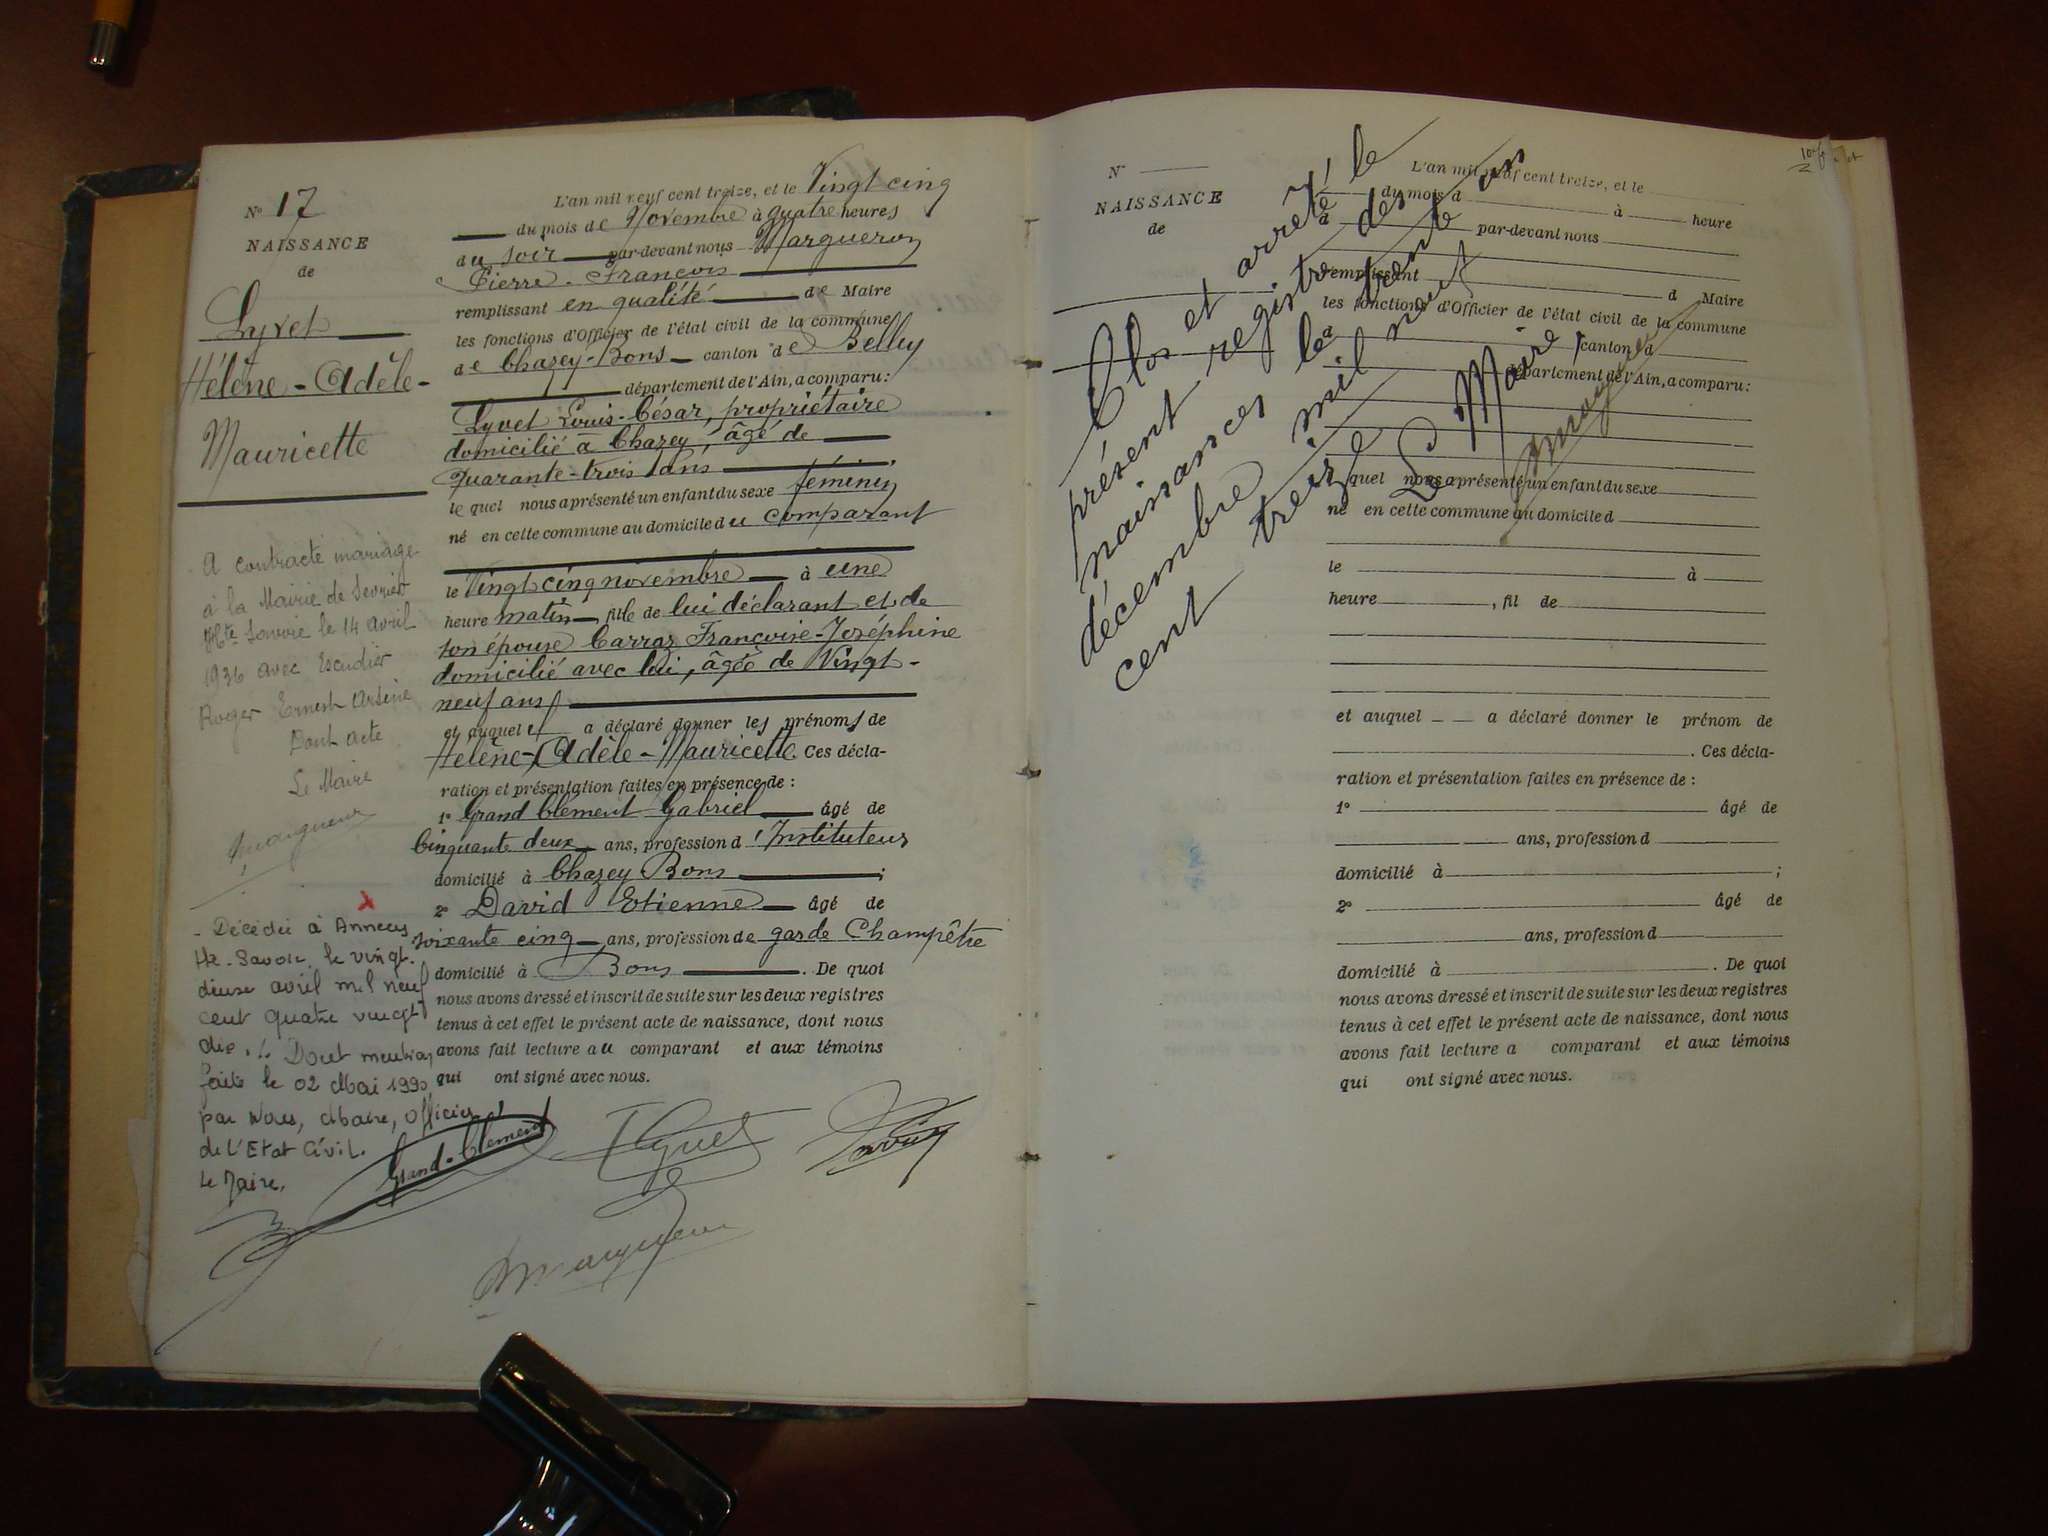 N° 17
NAISSANCE
de
Lyvet
Hélène-Adèle-
Mauricette
A contracté mariage
à la Mairie de Sevrier
Hte Savoie le 14 avril
1936 avec Escudier
Roger Ernest Arsène
Dont acte
Le Maire
Margueron
- Décédée à Annecy
Hte-Savoie, le vingt
deux avril mil neuf
cent quatre vingt
dix. Dont mention
faite le 02 Mai 1990
par Nous, Maire, Officier
de l'Etat Civil.
Le Maire,
L'an mil neuf cent treize, et le Vingt cinq
du mois de Novembre à quatre heures
du soir par-devant nous Margueron
Pierre-François
remplissant en qualité de Maire
les fonctions d'Officier de l'état civil de la commune
de Chazey-Bons canton de Belley
département de l'Ain, a comparu:
Lyvet Louis-César, propriétaire
domicilié à Chazey, âgé de
Quarante-trois ans
lequel nous a présenté un enfant du sexe féminin
né en cette commune au domicile du comparant
le Vingt cinq novembre à une
heure matin, fille de lui déclarant et de
son épouse Carraz Françoise-Joséphine
domicilié avec lui, âgée de Vingt-
neuf ans
et auquel il a déclaré donner les prénoms de
Hélène-Adèle-Mauricette. Ces décla-
ration et présentation faites en présence de :
1° Grand Clément Gabriel âgé de
Cinquante deux ans, profession d'Instituteur
domicilié à Chazey Bons ;
2° David Etienne âgé de
soixante cinq ans, profession de garde Champêtre
domicilié à Bons . De quoi
nous avons dressé et inscrit de suite sur les deux registres
tenus à cet effet le présent acte de naissance, dont nous
avons fait lecture au comparant et aux témoins
qui ont signé avec nous.
Grand-Clément Lyvet David
Margueron
N°
NAISSANCE
de
L'an mil neuf cent treize, et le
du mois d à heure
d par-devant nous
remplissant d Maire
les fonctions d'Officier de l'état civil de la commune
d canton d
département de l'Ain, a comparu:
quel nous a présenté un enfant du sexe
né en cette commune au domicile d
le à
heure , fil de
et auquel a déclaré donner le prénom de
. Ces décla-
ration et présentation faites en présence de :
1° âgé de
ans, profession d
domicilié à ;
2° âgé de
ans, profession d
domicilié à . De quoi
nous avons dressé et inscrit de suite sur les deux registres
tenus à cet effet le présent acte de naissance, dont nous
avons fait lecture a comparant et aux témoins
qui ont signé avec nous.
Clos et arrêté le
présent registre des
naissances le trente un
décembre mil neuf
cent treize
Le Maire
Margueron